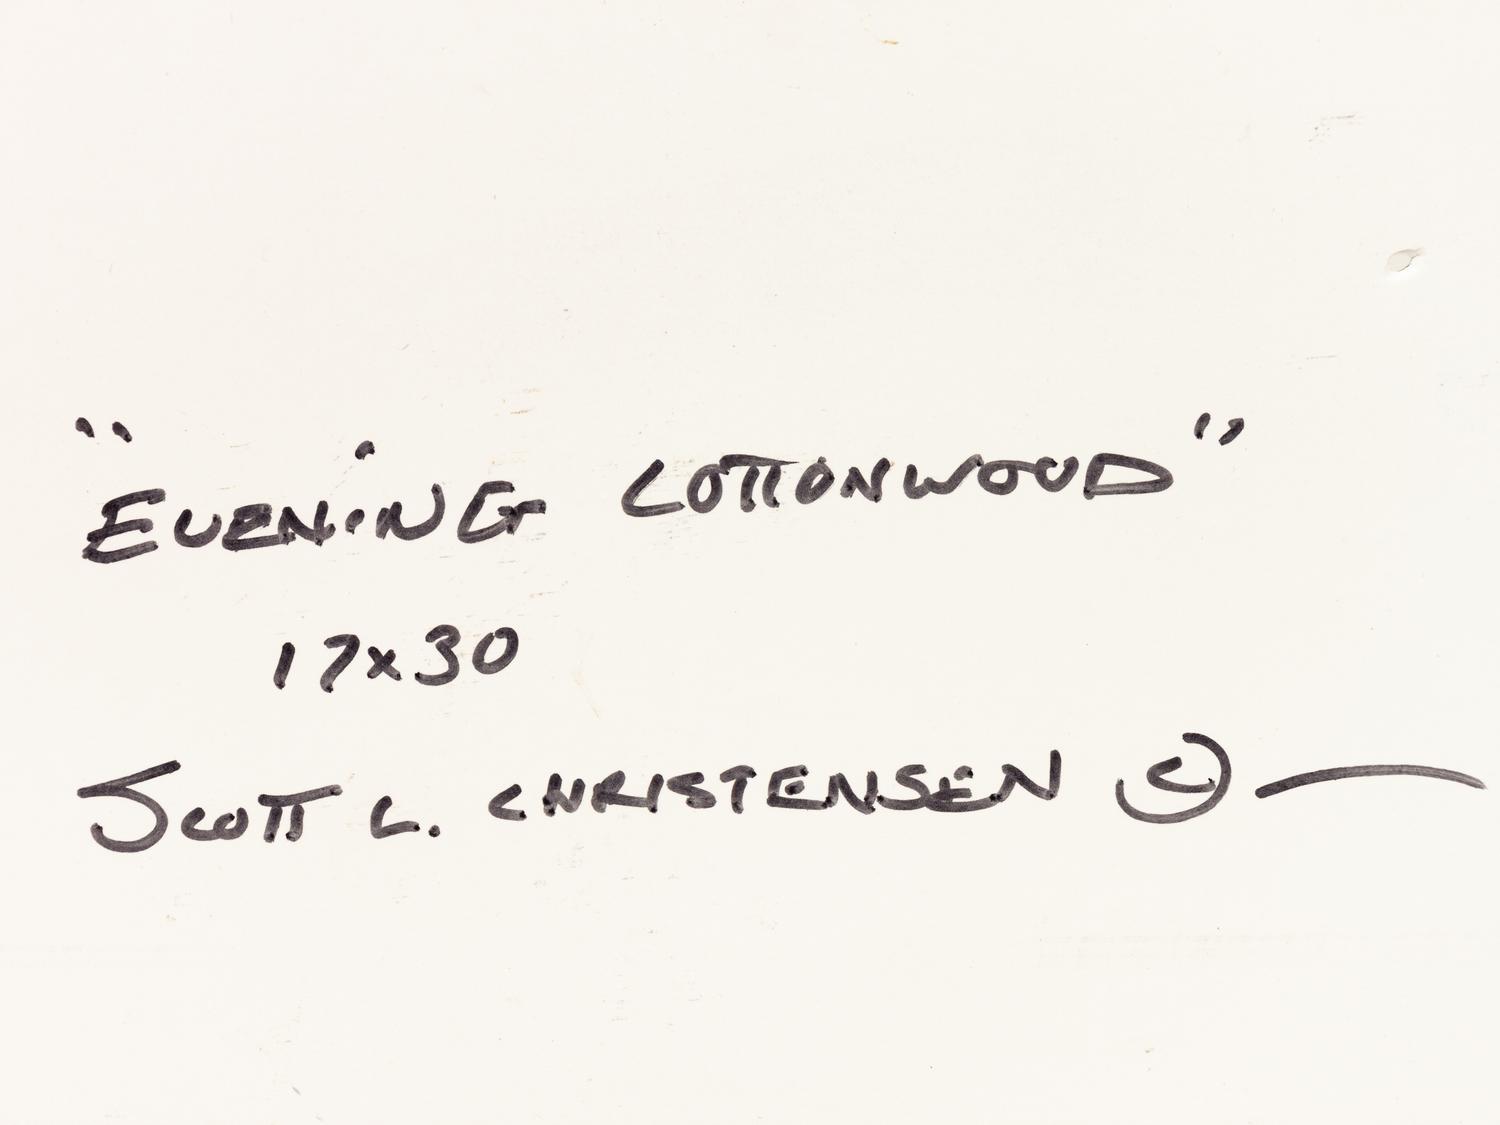 "EVENiNG COTTONWOOD"
17x30
SCOTT L. CHRISTENSEN ©